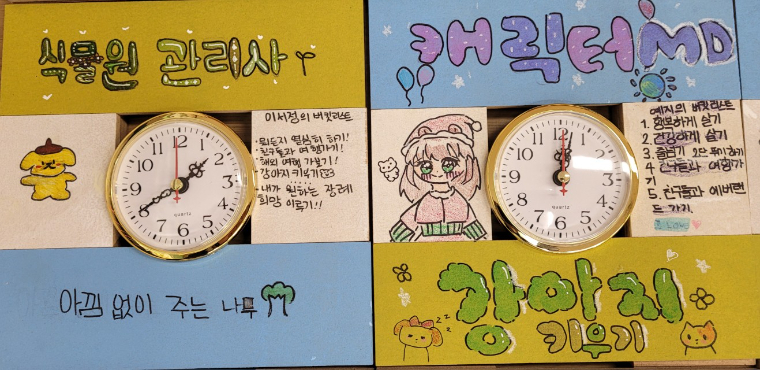 식물원 관리사
이서정의 버킷리스트
· 뭐든지 열심히 하기!
· 친구들과 여행가기!
· 해외 여행 가보기!
· 강아지 키우기
· 내가 원하는 장래
희망 이루기!!
12
1
2
3
4
5
6
7
8
9
10
11
QUARTZ
아낌 없이 주는 나무
캐릭터MD
예지의 버킷리스트
1. 행복하게 살기
2. 건강하게 살기
3. 즐겁기
4. 친구들과 여행가
기
5. 친구들과 에버랜
드 가기.
I Love
12
1
2
3
4
5
6
7
8
9
10
11
QUARTZ
강아지
키우기
z z z